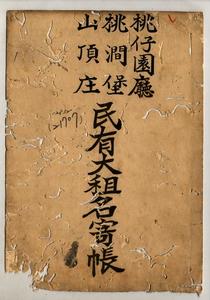 桃仔園廳
桃澗堡
山頂庄
民有大租名寄帳